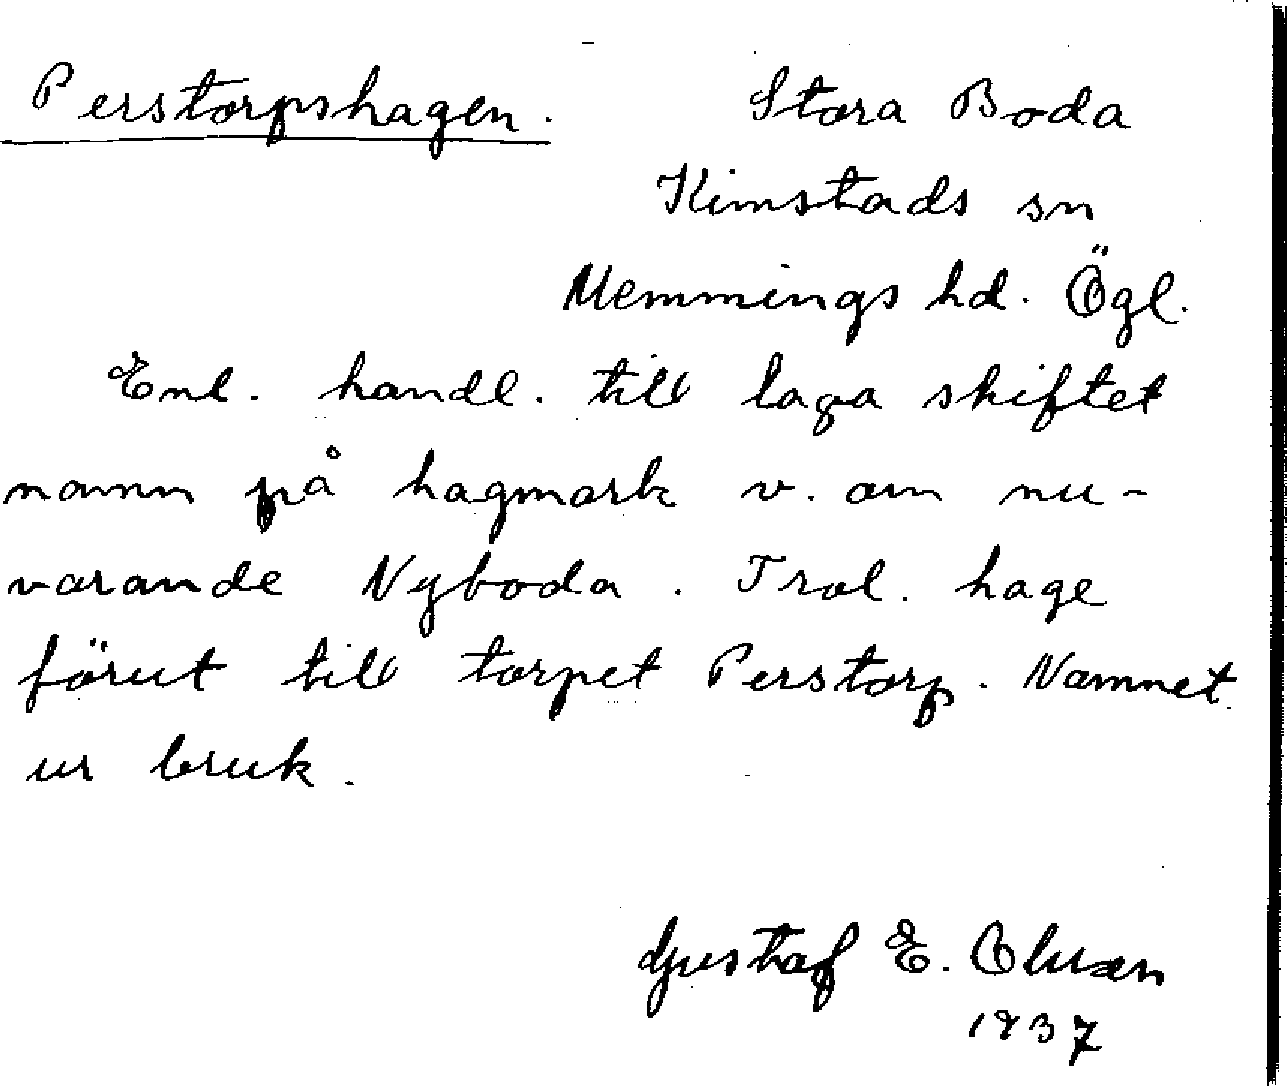 Perstorpshagen. Stora Boda
Kimstads sn
Memmings hd. Ögl.
Enl. handl. till laga skiftet
namn på hagmark v. om nu-
varande Nyboda. Trol. hage
förut till torpet Perstorp. Namnet
ur bruk.
Gustaf E. Olsson
1937